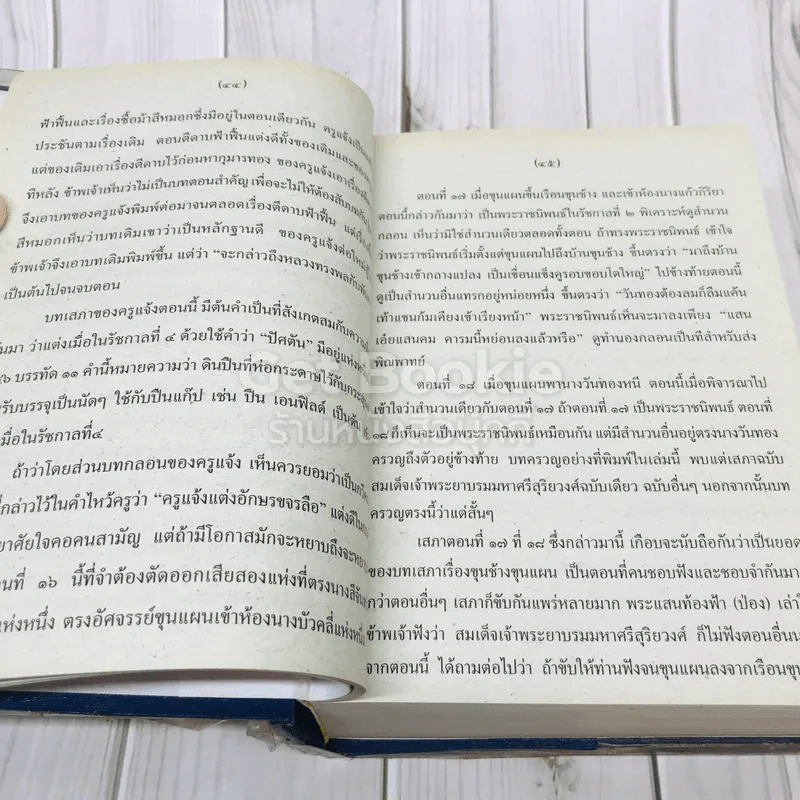 (๔๔)
ฟ้าฟื้นและเรื่องซื้อม้าสีหมอกซึ่งมีอยู่ในตอนเดียวกัน ครูแจ้งเป็น
ประชันตามเรื่องเดิม ตอนตีดาบฟ้าฟื้นแต่งดีทั้งของเดิมและของ
แต่ของเดิมเอาเรื่องตีดาบไว้ก่อนหากุมารทอง ของครูแจ้งเอาเรื่อง
ทีหลัง ข้าพเจ้าเห็นว่าไม่เป็นบทตอนสำคัญ เพื่อจะไม่ให้ต้องสับบท
จึงเอาบทของครูแจ้งพิมพ์ต่อมาจนตลอดเรื่องตีดาบฟ้าฟื้น แต่เรื่อง
สีหมอกเห็นว่าบทเดิมเขาว่าเป็นหลักฐานดี ของครูแจ้งต่อใหม่
ข้าพเจ้าจึงเอาบทเดิมพิมพ์ขึ้น แต่ว่า “จะกล่าวถึงหลวงทรงพลกับพัน
เป็นต้นไปจนจบตอน
บทเสภาของครูแจ้งตอนนี้ มีต้นคำเป็นที่สังเกตสมกับความ
ันมา ว่าแต่งเมื่อในรัชกาลที่ ๔ ด้วยใช้คำว่า “ปัศตัน” มีอยู่แห่งหนึ่ง
๖ บรรทัด ๑๑ คำนี้หมายความว่า ดินปืนที่ห่อกระดาษไว้กับกระสุน
รับบรรจุเป็นนัดๆ ใช้กับปืนแก๊ป เช่น ปืน เอนฟิลด์ เป็นต้น
เมื่อในรัชกาลที่๔
ถ้าว่าโดยส่วนบทกลอนของครูแจ้ง เห็นควรยอมว่าเป็น
กล่าวไว้ในคำไหว้ครูว่า “ครูแจ้งแต่งอักษรขจรลือ” แต่งดี
ยาศัยใจคอคนสามัญ แต่ถ้ามีโอกาสมักจะหยาบถึงจะหยาบ
อนที่ ๑๖ นี้ที่จำต้องตัดออกเสียสองแห่งที่ตรงนางสีจัน
แห่งหนึ่ง ตรงอัศจรรย์ขุนแผนเข้าห้องนางบัวคลี่แห่งหนึ่ง
(๔๕)
ตอนที่ ๑๗ เมื่อขุนแผนขึ้นเรือนขุนช้าง และเข้าห้องนางแก้วกิริยา
ตอนนี้กล่าวกันมาว่า เป็นพระราชนิพนธ์ในรัชกาลที่ ๒ พิเคราะห์ดูสำนวน
กลอน เห็นว่ามิใช่สำนวนเดียวตลอดทั้งตอน ถ้าทรงพระราชนิพนธ์ เข้าใจ
ว่าพระราชนิพนธ์เริ่มตั้งแต่ขุนแผนไปถึงบ้านขุนช้าง ขึ้นตรงว่า “มาถึงบ้าน
ขุนช้างเข้ากลางแปลง เป็นเขื่อนแข็งคูรอบขอบโตใหญ่” ไปข้างท้ายตอนนี้
ดูเป็นสำนวนอื่นแทรกอยู่หน่อยหนึ่ง ขึ้นตรงว่า “วันทองต้องลมก็ลืมแค้น
เท้าแขนก้มเคียงเข้าเรียงหน้า” พระราชนิพนธ์เห็นจะมาลงเพียง “แสน
เอ๋ยแสนคม คารมนี้หย่อนลงแล้วหรือ” ดูทำนองกลอนเป็นทีสำหรับส่ง
พิณพาทย์
ตอนที่ ๑๘ เมื่อขุนแผนพานางวันทองหนี ตอนนี้เมื่อพิจารณาไป
เข้าใจว่าสำนวนเดียวกับตอนที่ ๑๗ ถ้าตอนที่ ๑๗ เป็นพระราชนิพนธ์ ตอนที่
๑๘ ก็เห็นจะเป็นพระราชนิพนธ์เหมือนกัน แต่มีสำนวนอื่นอยู่ตรงนางวันทอง
ครวญถึงตัวอยู่ข้างท้าย บทครวญอย่างที่พิมพ์ในเล่มนี้ พบแต่เสภาฉบับ
สมเด็จเจ้าพระยาบรมมหาศรีสุริยวงศ์ฉบับเดียว ฉบับอื่นๆ นอกจากนั้นบท
ครวญตรงนี้ว่าแต่สั้นๆ
เสภาตอนที่ ๑๗ ที่ ๑๘ ซึ่งกล่าวมานี้ เกือบจะนับถือกันว่าเป็นยอด
ของบทเสภาเรื่องขุนช้างขุนแผน เป็นตอนที่คนชอบฟังและชอบจำกันมา
กว่าตอนอื่นๆ เสภาก็ขับกันแพร่หลายมาก พระแสนท้องฟ้า (ป่อง) เล่าให้
ข้าพเจ้าฟังว่า สมเด็จเจ้าพระยาบรมมหาศรีสุริยวงศ์ ก็ไม่ฟังตอนอื่น
จากตอนนี้ ได้ถามต่อไปว่า ถ้าขับให้ท่านฟังจนขุนแผนลงจากเรือนขุน
Get Bookie